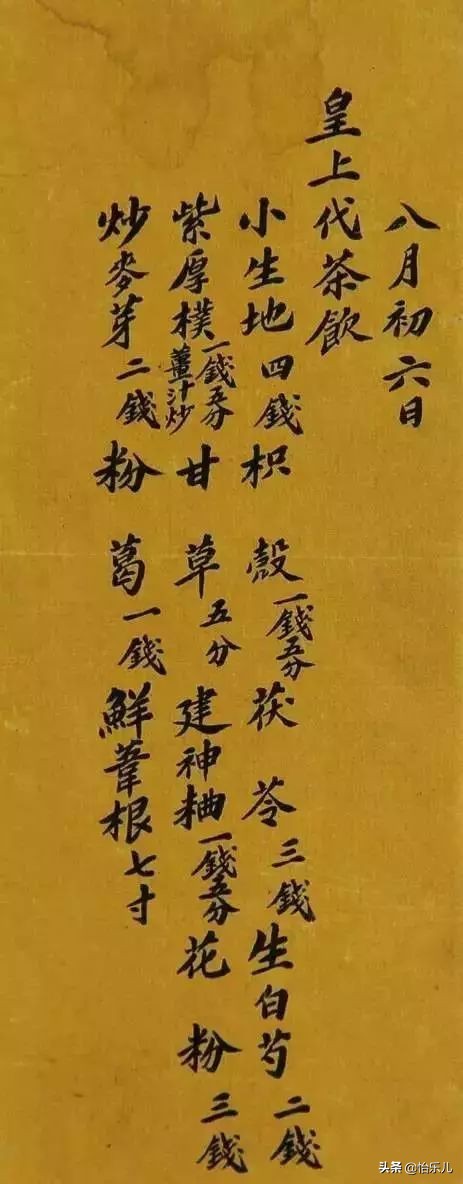 八月初六日
皇上代茶飲
小生地四錢 枳殼一錢五分 茯苓三錢 生白芍二錢
紫厚樸一錢五分薑汁炒 甘草五分 建神粬一錢五分 花粉三錢
炒麥芽二錢 粉葛一錢 鮮葦根七寸
头条 @怡乐儿